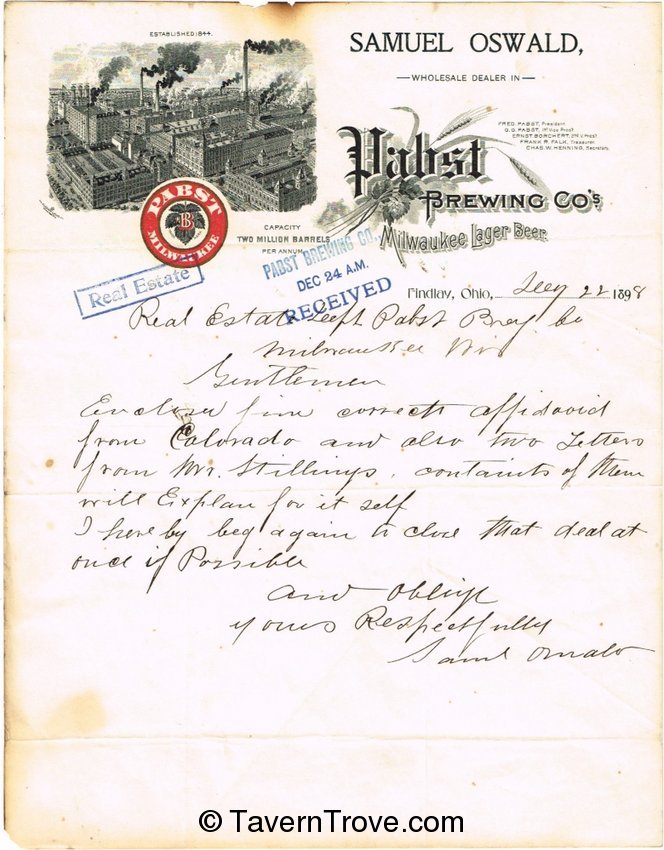 ESTABLISHED 1844.
SAMUEL OSWALD,
WHOLESALE DEALER IN
FRED. PABST, President.
G. G. PABST, 1st Vice Prest.
ERNST BORCHERT, 2nd V. Prest.
FRANK R. FALK, Treasurer.
CHAS. W. HENNING, Secretary.
Pabst
BREWING CO'S
Milwaukee Lager Beer.
PABST
B
MILWAUKEE
CAPACITY
TWO MILLION BARRELS
PER ANNUM.
Real Estate
PABST BREWING CO.
DEC 24 A.M.
RECEIVED
Findlay, Ohio, 22 1898
Real Estate Dept Pabst Brey Co
Milwaukee Wis
Gentlemen
Enclose fine correct affidavid
from Colorado and also two Letters
from Mr. Stillings. containts of them
will Explan for it self
I hereby beg again to close that deal at
once if Possible
and Oblige
yours Respectfully
Saml Oswald
© TavernTrove.com